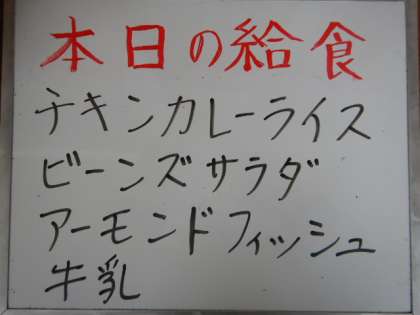 本日の給食
チキンカレーライス
ビーンズサラダ
アーモンドフィッシュ
牛乳